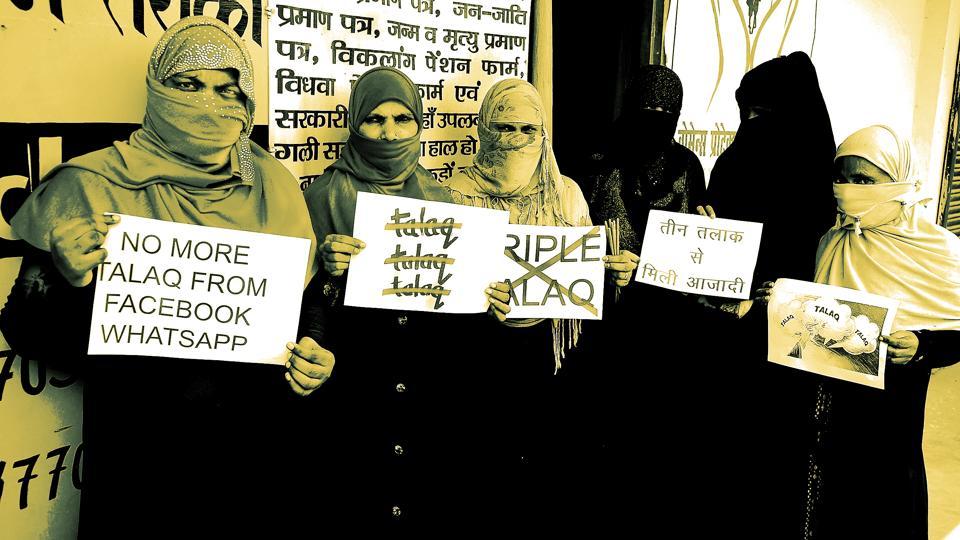 प्रमाण पत्र, जन-जाति
प्रमाण पत्र, जन्म व मृत्यु प्रमाण
पत्र, विकलांग पेंशन फार्म,
विधवा फार्म एवं
सरकारी
गली हाल हो
NO MORE
TALAQ FROM
FACEBOOK
WHATSAPP
talaq
talaq
talaq
RIPLE
ALAQ
तीन तलाक
से
मिली आजादी
TALAQ
TALAQ
TALAQ